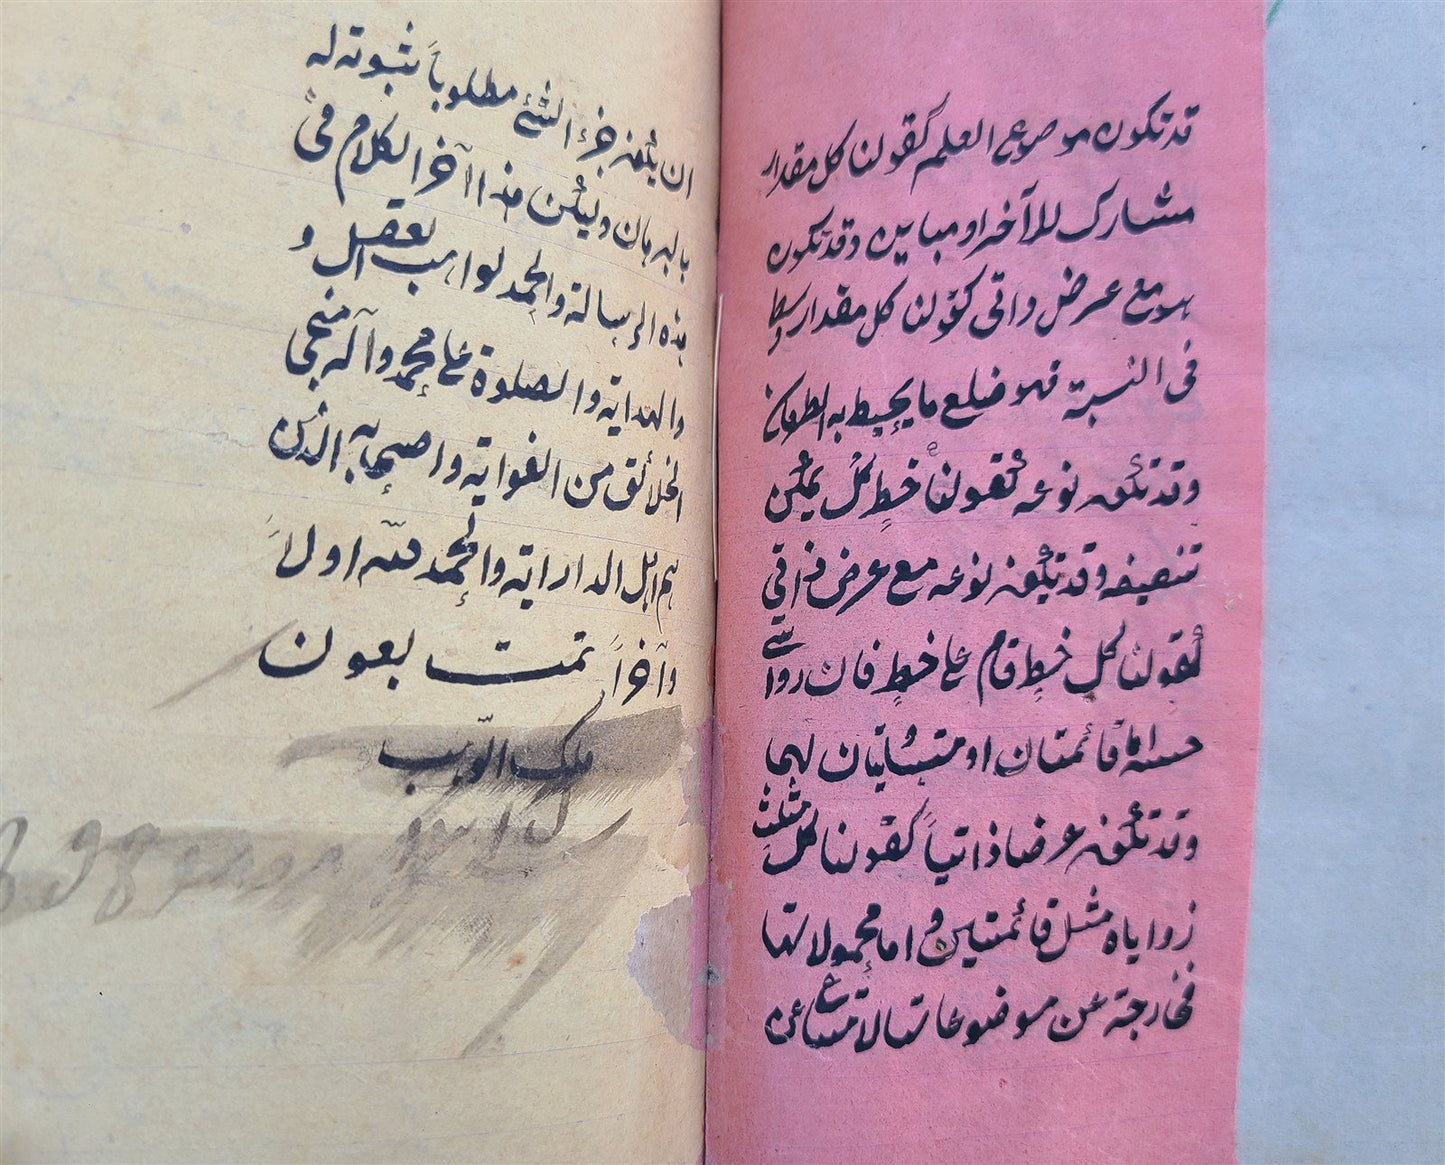 قد تكون موضوع العلم كقولنا كل مقدار
مشارك للآخر او مباين وقد تكون
هو مع عرض ذاتى كقولنا كل مقدار وسط
فى النسبة فهو ضلع ما يحيط به الطرفان
وقد تكون نوعه كقولنا كل خط يمكن
تنصيفه وقد تكون نوعه مع عرض ذاتى
كقولنا كل خط قام على خط فان زوايتى
جنبيه اما قائمتان او متساويتان لهما
وقد تكون عرضا ذاتياً كقولنا كل مثلث
زواياه مثل قائمتين و اما محمولاتها
فخارجة عن موضوعاتها لامتناع
ان يكون جزء الشئ مطلوباً ثبوته له
بالبرهان وليكن هذا آخر الكلام فى
هذه الرسالة والحمد لواهب العقل و
والهداية والصلوة على محمد وآله منجى
الخلائق من الغواية واصحابه الذين
هم اهل الدراية والحمد لله اولاً
وآخراً تمت بعون
ملك الوهب